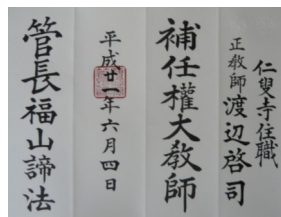 仁叟寺住職
正教師渡辺啓司
補任權大教師
平成廿一年六月四日
管長福山諦法